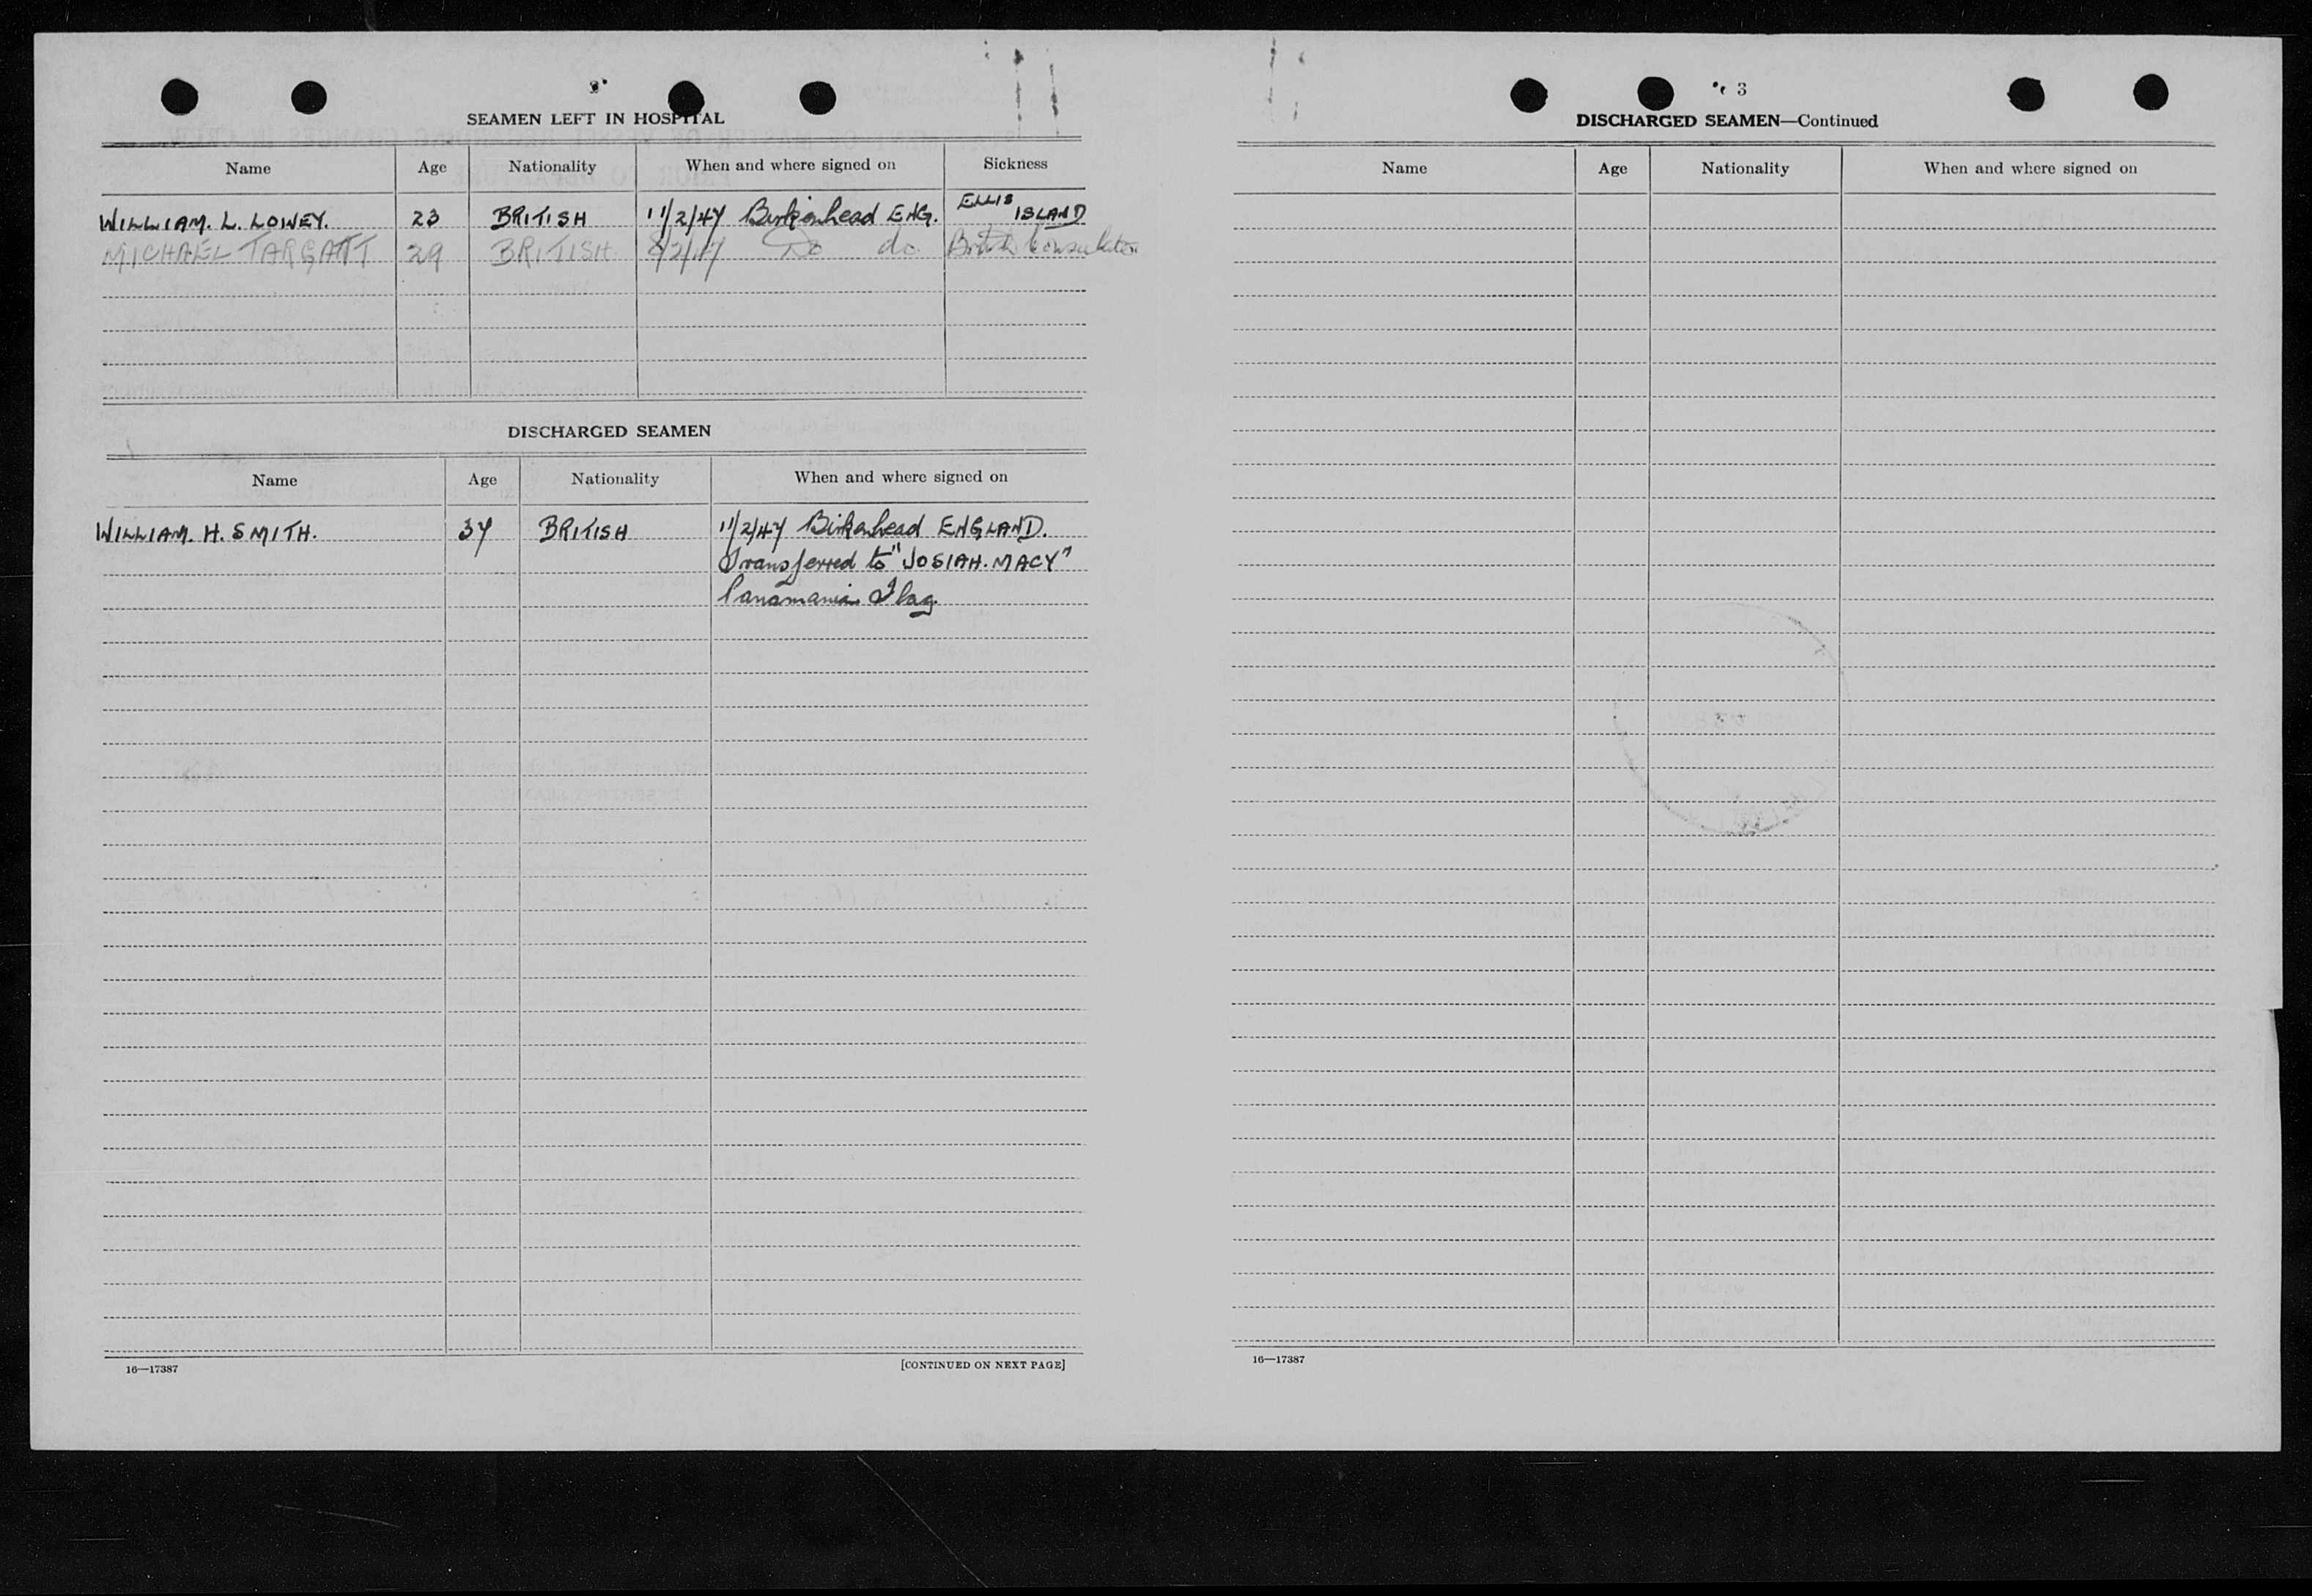 SEAMEN LEFT IN HOSPITAL
Name Age Nationality When and where signed on Sickness
WILLIAM. L. LOWEY. 23 BRITISH 11/2/47 Birkenhead ENG. ELLIS ISLAND
MICHAEL TARGATT 29 BRITISH 8/2/47 Do do British
DISCHARGED SEAMEN
Name Age Nationality When and where signed on
WILLIAM. H. SMITH. 37 BRITISH 11/2/47 Birkenhead ENGLAND.
Transferred to "JOSIAH. MACY"
Panamanian Flag.
16—17387 [CONTINUED ON NEXT PAGE]
3
DISCHARGED SEAMEN—Continued
Name Age Nationality When and where signed on
16—17387